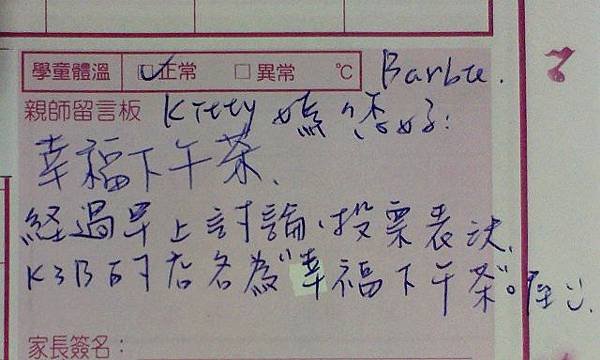 學童體溫 ☑正常 □異常 ℃ Barbie.
親師留言板 Kitty 媽媽好:
幸福下午茶、
經過早上討論、投票表決,
K3B的店名為"幸福下午茶"。
家長簽名: